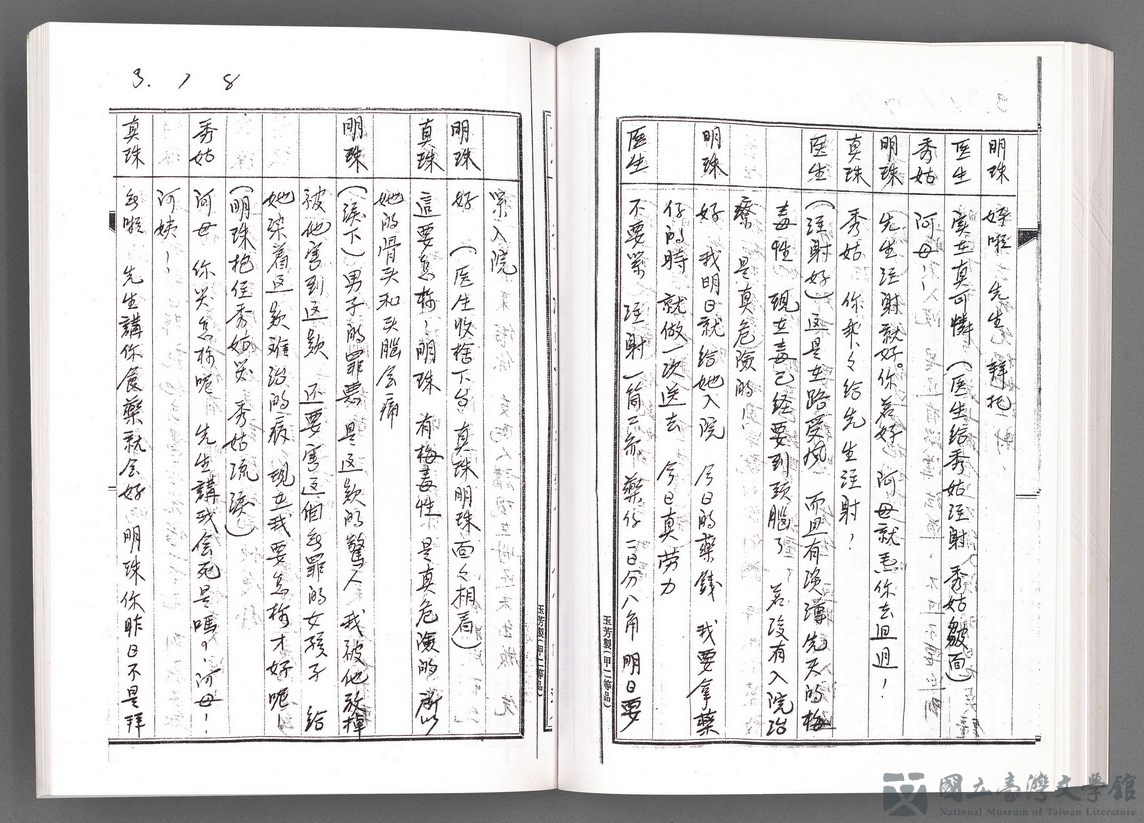 明珠 好啦 先生 拜托
医生 实在真可憐 (医生给秀姑注射 秀姑皺面)
秀姑 阿母！
明珠 先生注射就好。你若好 阿母就焉你去迌迌！
真珠 秀姑 你乖々给先生注射！
医生 (注射好) 这是在路受风 而且有染漽先天的梅
毒性 现在毒已经要到頭腦了 若没有入院治
療 是真危險的！
明珠 好 我明日就给她入院 今日的藥錢 我要拿藥
仔的時 就做一次送去 今日真劳力
医生 不要緊 注射一筒二元 藥仔一日分八角 明日要
緊入院
明珠 好 (医生收捨下台 真珠明珠面々相看)
真珠 這要怎樣！明珠 有梅毒性 是真危險的 所以
她的骨头和头腦会痛
明珠 (淚下) 男子的罪悪 是这款的驚人 我被他放揮
被他害到这款 还要害这個無罪的女孩子 给
她染着这款难治的病 现在我要怎樣才好呢！
(明珠抱住秀姑哭 秀姑流淚)
秀姑 阿母 你哭怎樣呢 先生講我会死是嗎？阿母！
阿姨！
真珠 無啦 先生講你食藥就会好 明珠你昨日不是拜
3. 1 8
玉芳製(甲二等品)
玉芳製(甲二等品)
國立臺灣文學館
National Museum of Taiwan Literature